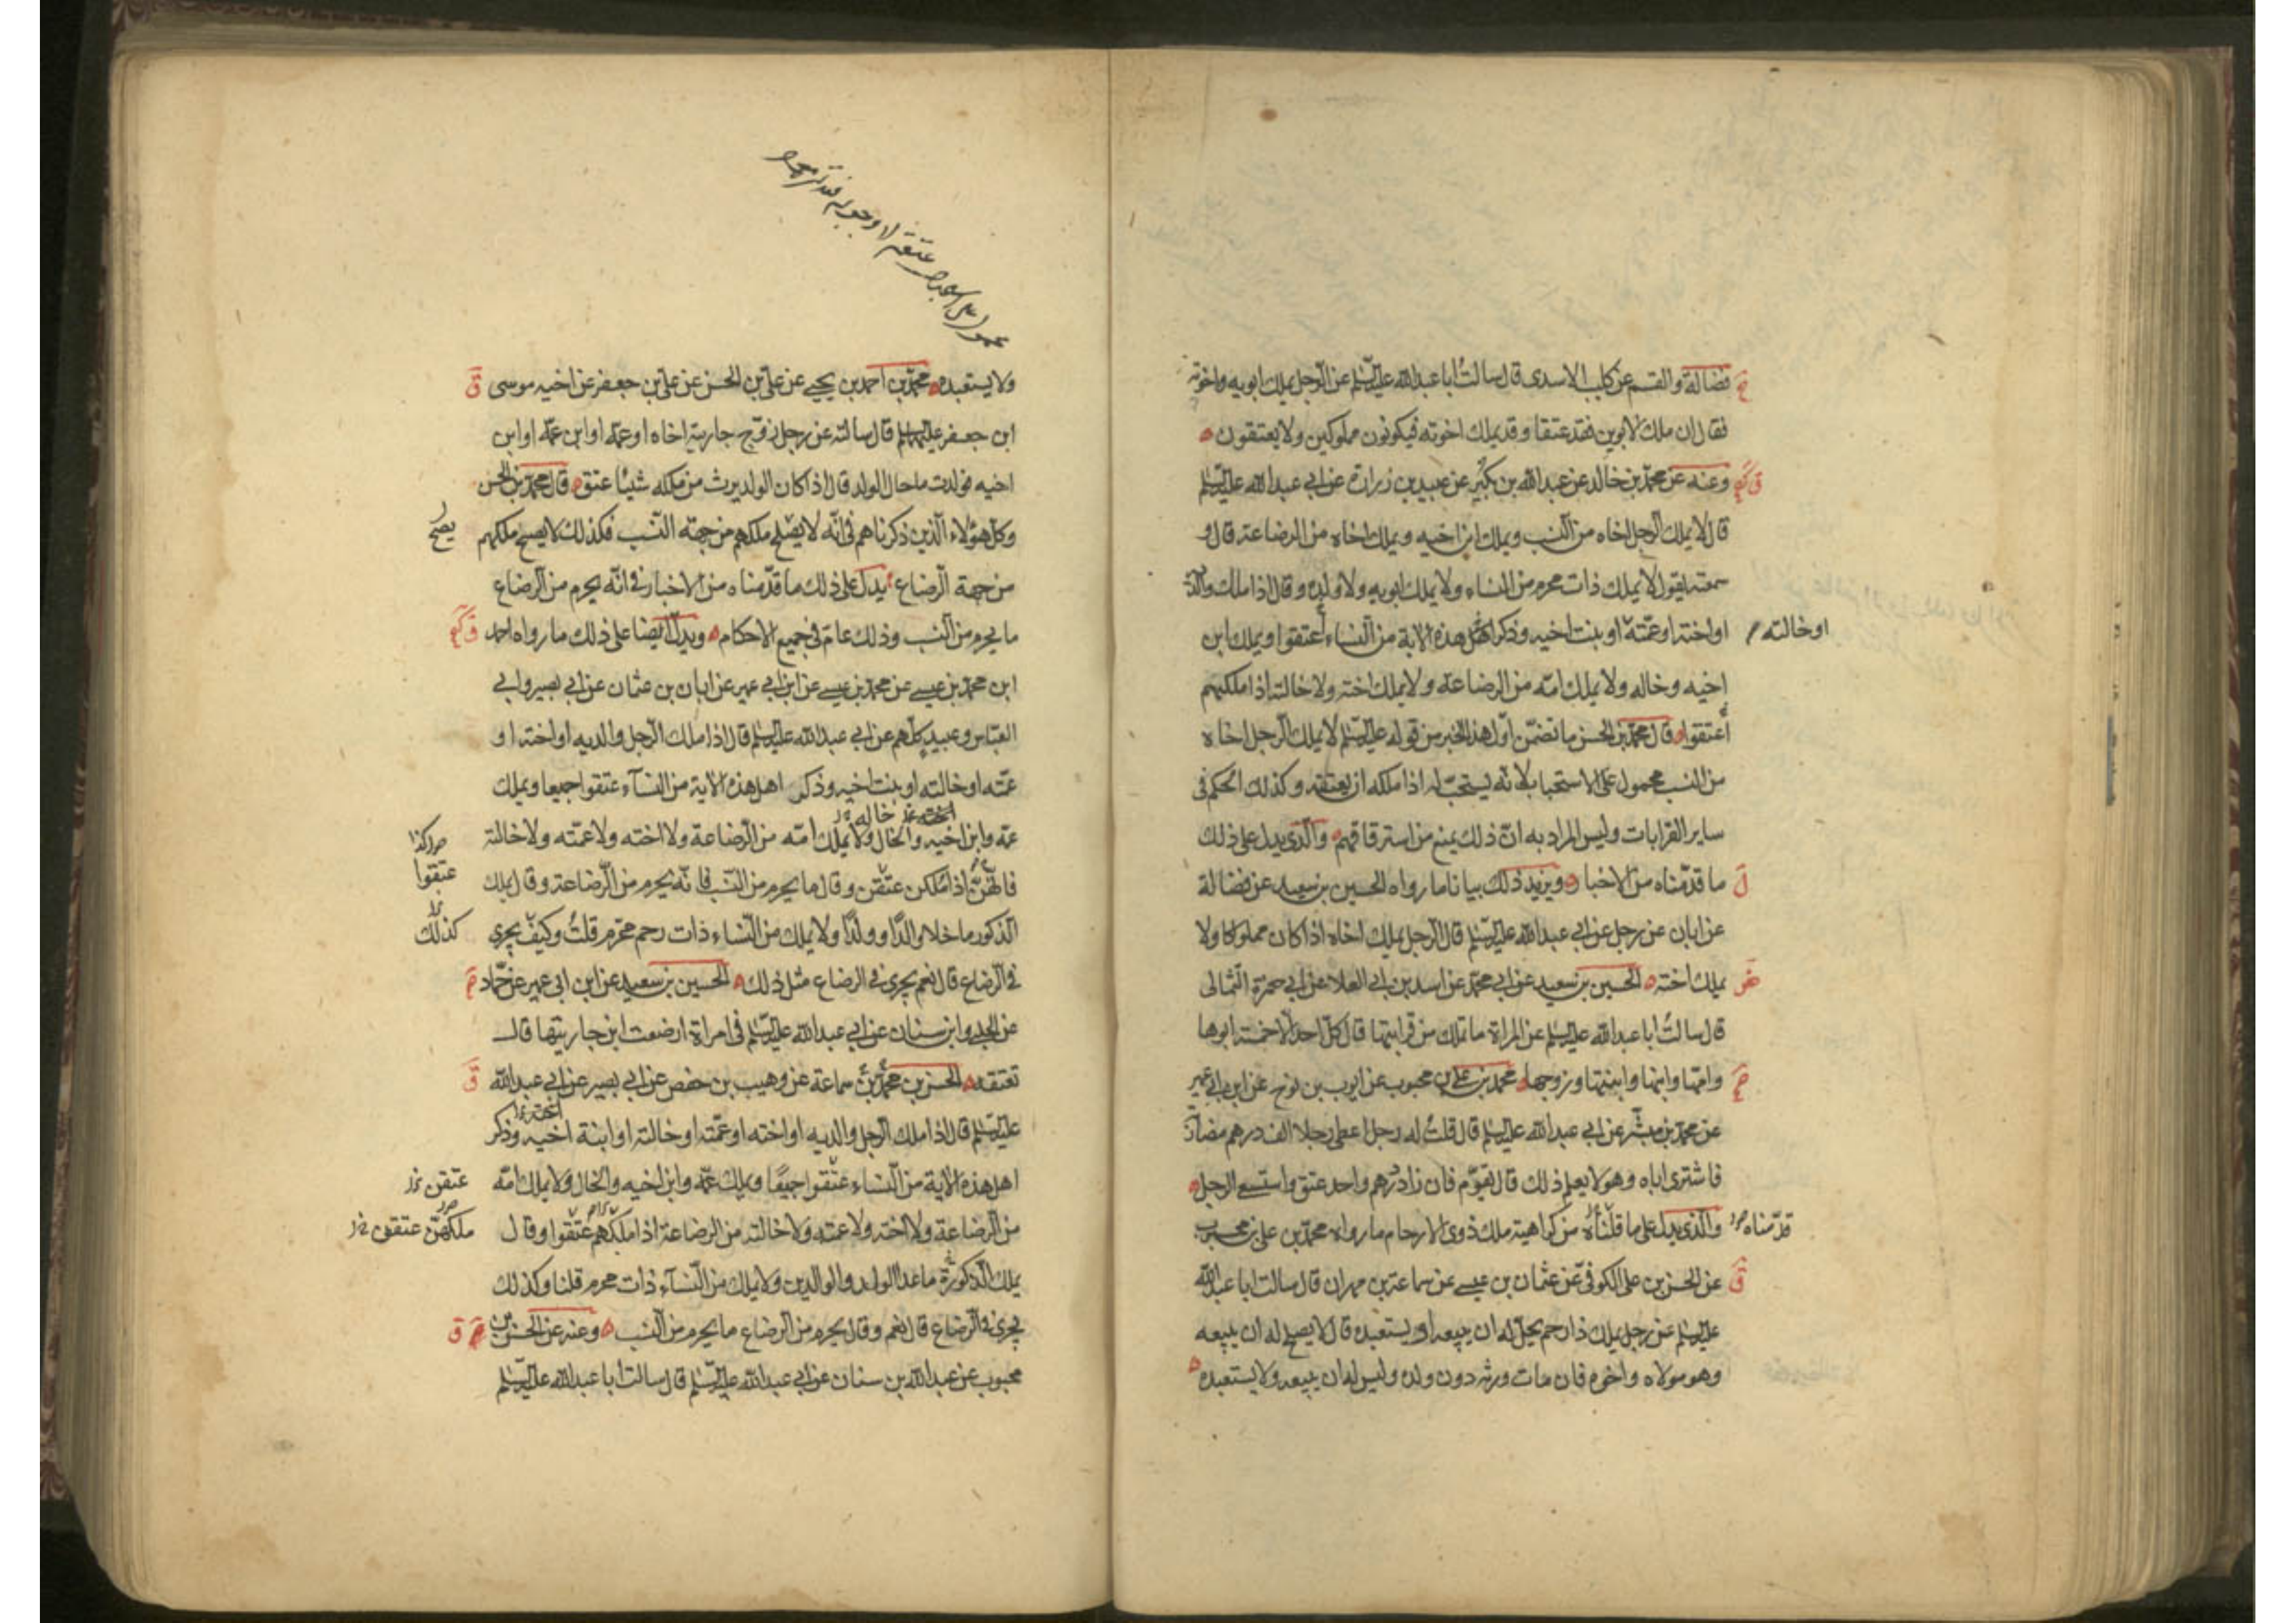 فضالة والقسم عن كليب الاسدى قال سالت ابا عبد الله عليه السلم عن الرجل يملك ابويه واخوته
فقال ان ملك الابوين فقد عتقا وقد يملك اخوته فيكونون مملوكين ولا يعتقون
وعنه عن محمد بن خالد عن عبد الله بن بكير عن عبيد بن زرارة عن ابي عبد الله عليه السلم
قال لا يملك الرجل اخاه من النسب ويملك ابن اخيه ويملك اخاه من الرضاعة قال و
سمعته يقول لا يملك ذات محرم من النساء ولا يملك ابويه ولا ولده وقال اذا ملك والديه
او اخته او عمته او بنت اخيه وذكر اهل هذه الاية من النساء أعتقوا ويملك ابن
او خالته
اخيه وخاله ولا يملك امه من الرضاعة ولا يملك اخته ولا خالته اذا ملكهم
أعتقوا قال محمد بن الحسن ما تضمن اول هذا الخبر من قوله عليه السلم لا يملك الرجل اخاه
من النسب محمول على الاستحباب لانه يستحب له اذا ملكه ان يعتقه وكذلك الحكم في
ساير القرابات وليس المراد به ان ذلك يمنع من استرقاقهم والذى يدل على ذلك
ما قدمناه من الاخبار ويزيد ذلك بيانا ما رواه الحسين بن سعيد عن فضالة
عن ابان عن رجل عن ابي عبد الله عليه السلم قال الرجل يملك اخاه اذا كان مملوكا ولا
يملك اخته الحسين بن سعيد عن ابي محمد عن اسد بن ابي العلا عن ابي حمزة الثمالى
قال سالت ابا عبد الله عليه السلم عن المراة ما تملك من قرابتها قال كل احد الا خمسة ابوها
وامها وابنها وابنتها وزوجها محمد بن علي بن محبوب عن ايوب بن نوح عن ابن ابي عمير
عن محمد بن ميسر عن ابي عبد الله عليه السلم قال قلت له رجل اعطى رجلا الف درهم مضاربة
فاشترى اباه وهو لا يعلم ذلك قال يقوم فان زاد درهم واحد عتق واستسعى الرجل
والذى يدل على ما قلناه من كراهية ملك ذوى الارحام ما رواه محمد بن علي بن محبوب
قدمناه
عن الحسن بن على الكوفي عن عثمان بن عيسى عن سماعة بن مهران قال سالت ابا عبد الله
عليه السلم عن رجل يملك ذا رحم يحل له ان يبيعه او يستعبده قال لا يصلح له ان يبيعه
وهو مولاه واخوه فان مات ورثه دون ولده وليس له ان يبيعه ولا يستعبده
ولا يستعبده محمد بن احمد بن يحيى عن علي بن الحسن عن علي بن جعفر عن اخيه موسى
ابن جعفر عليهما السلم قال سالته عن رجل زوج جاريته اخاه او عمه او ابن عمه او ابن
اخيه فولدت ما حال الولد قال اذا كان الولد يرث من ملكه شيئا عتق قال محمد بن الحسن
وكل هؤلاء الذين ذكرناهم في انه لا يصلح ملكهم من جهة النسب فكذلك لا يصح ملكهم
يصح
من جهة الرضاع يدل على ذلك ما قدمناه من الاخبار في انه يحرم من الرضاع
ما يحرم من النسب وذلك عام في جميع الاحكام ويدل ايضا على ذلك ما رواه احمد
ابن محمد بن عيسى عن محمد بن عيسى عن ابن ابي عمير عن ابان بن عثمان عن ابي بصير وابي
العباس وعبيد كلهم عن ابي عبد الله عليه السلم قال اذا ملك الرجل والديه او اخته او
عمته او خالته او بنت اخيه وذكر اهل هذه الاية من النساء عتقوا جميعا ويملك
عمه وابن اخيه والخال ولا يملك امه من الرضاعة ولا اخته ولا عمته ولا خالته
فانهن اذا ملكن عتقن وقال ما يحرم من النسب فانه يحرم من الرضاعة وقال يملك
عتقوا
الذكور ما خلا والدا وولدا ولا يملك من النساء ذات رحم محرم قلت وكيف يجرى
كذلك
في الرضاع قال نعم يجرى في الرضاع مثل ذلك الحسين بن سعيد عن ابن ابى عمير عن حماد
عن الحلبي وابن سنان عن ابي عبد الله عليه السلم في امراة ارضعت ابن جاريتها قال
تعتقه الحسن بن محمد بن سماعة عن وهيب بن حفص عن ابي بصير عن ابي عبد الله
عليه السلم قال اذا ملك الرجل والديه او اخته او عمته او خالته او ابنة اخيه وذكر
اهل هذه الاية من النساء عتقوا جميعا ويملك عمه وابن اخيه والخال ولا يملك امه
عتقن
من الرضاعة ولا اخته ولا عمته ولا خالته من الرضاعة اذا ملكهم عتقوا وقال
ملكهن عتقن
يملك الذكورة ما عدا الولد والوالدين ولا يملك من النساء ذات محرم قلنا وكذلك
يجرى في الرضاع قال نعم وقال يحرم من الرضاع ما يحرم من النسب وعنه عن الحسن بن
محبوب عن عبد الله بن سنان عن ابي عبد الله عليه السلم قال سالت ابا عبد الله عليه السلم